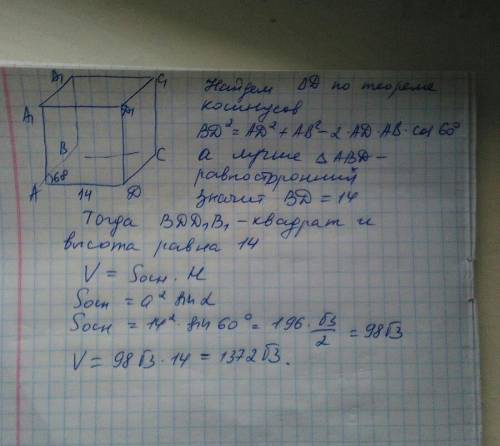 B₁ C₁
A₁ D₁
B C
A 60 14 D
Найдем BD по теореме
косинусов
BD² = AD² + AB² - 2·AD·AB·cos 60°
а лучше △ABD -
равносторонний
значит BD = 14
Тогда BDD₁B₁ - квадрат и
высота равна 14
V = Sосн · H
Sосн = a² sin α
Sосн = 14² · sin 60° = 196 · √3/2 = 98√3
V = 98√3 · 14 = 1372√3.